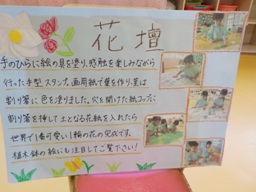 花壇
手のひらに絵の具を塗り、感触を楽しみながら
行った手型スタンプ。画用紙で葉を作り、茎は
割り箸に色を塗りました。穴を開けた紙コップに
割り箸を挿して土となる花紙を入れたら
世界で1番可愛い1輪の花の完成です。
植木鉢の絵にも注目してご覧下さい!